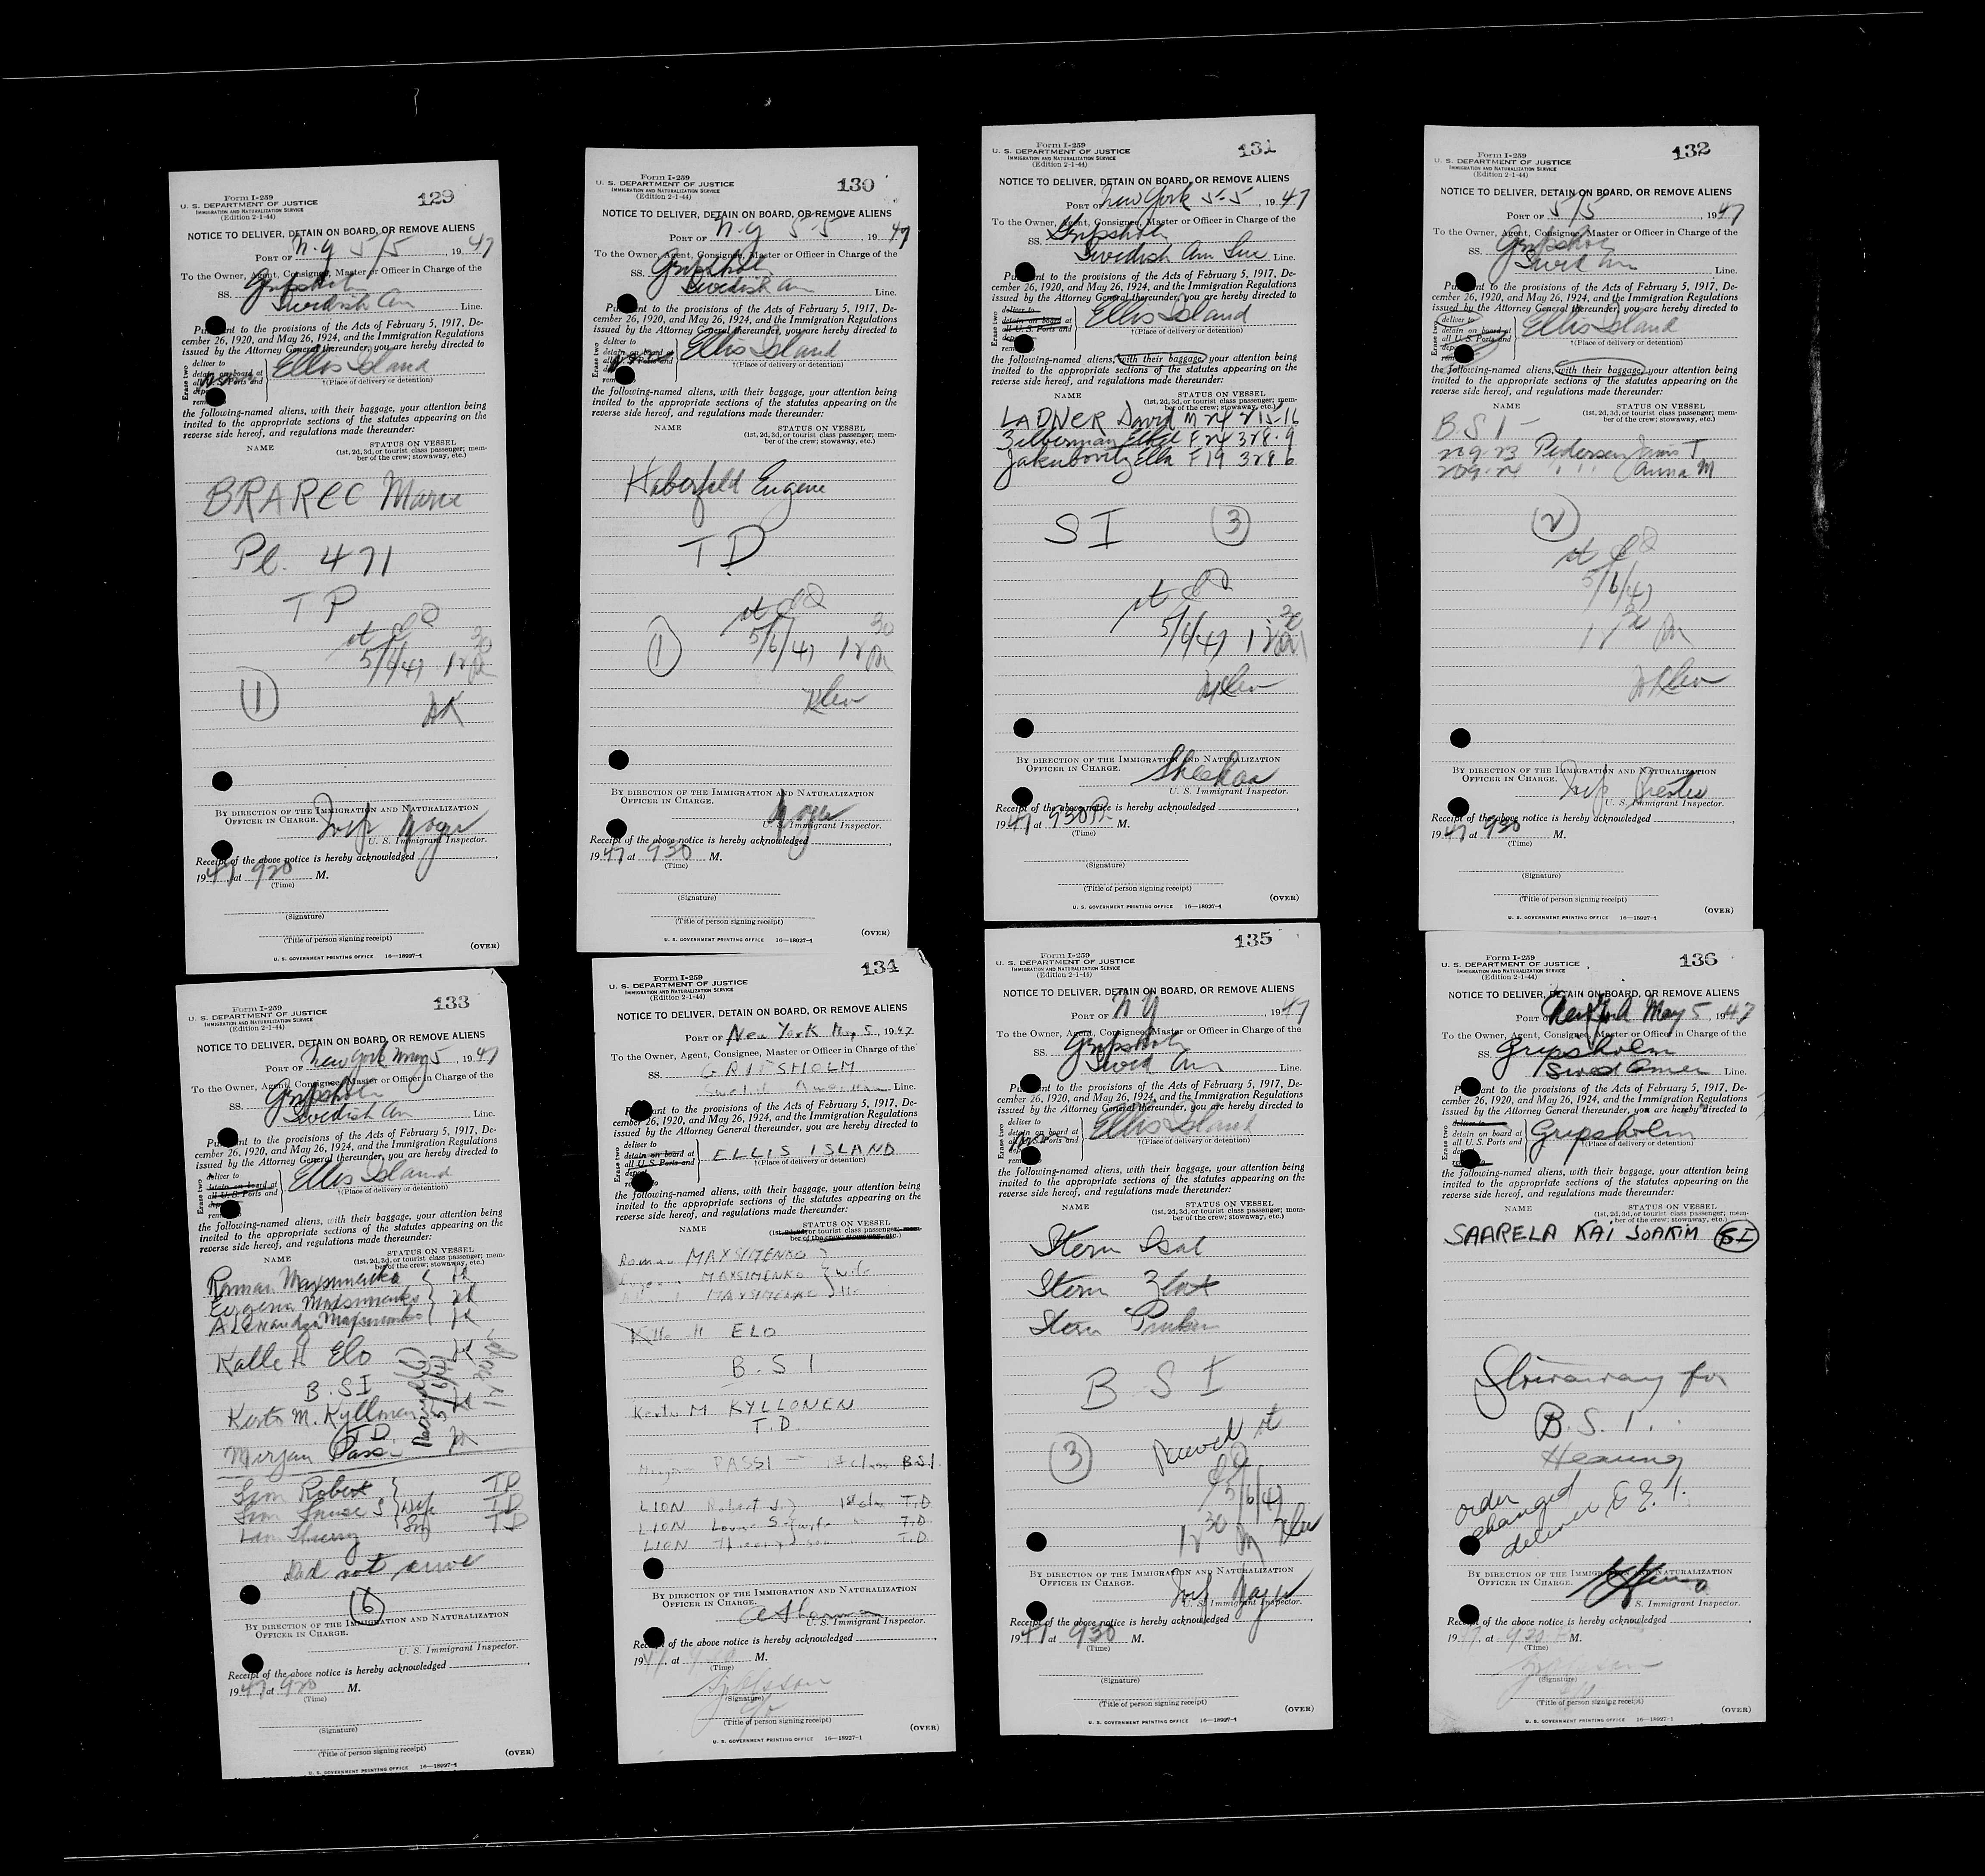 129
Form I-259
U. S. DEPARTMENT OF JUSTICE
IMMIGRATION AND NATURALIZATION SERVICE
(Edition 2-1-44)
NOTICE TO DELIVER, DETAIN ON BOARD, OR REMOVE ALIENS
PORT OF N.Y 5/5, 1947
To the Owner, Agent, Consignee, Master or Officer in Charge of the
SS. Gripsholm
Swedish Am Line.
Pursuant to the provisions of the Acts of February 5, 1917, De-
cember 26, 1920, and May 26, 1924, and the Immigration Regulations
issued by the Attorney General thereunder, you are hereby directed to
Erase two
deliver to
detain on board at
all U. S. Ports and
Ellis Island
†(Place of delivery or detention)
the following-named aliens, with their baggage, your attention being
invited to the appropriate sections of the statutes appearing on the
reverse side hereof, and regulations made thereunder:
NAME STATUS ON VESSEL
(1st, 2d, 3d, or tourist class passenger; mem-
ber of the crew; stowaway, etc.)
BRAREC Marie
Pl. 471
TP
5/6/47 12 30
1
HK
BY DIRECTION OF THE IMMIGRATION AND NATURALIZATION
OFFICER IN CHARGE.
U. S. Immigrant Inspector.
Receipt of the above notice is hereby acknowledged
1947 at 920 M.
(Time)
(Signature)
(Title of person signing receipt)
(OVER)
U. S. GOVERNMENT PRINTING OFFICE 16—18927-1
130
Form I-259
U. S. DEPARTMENT OF JUSTICE
IMMIGRATION AND NATURALIZATION SERVICE
(Edition 2-1-44)
NOTICE TO DELIVER, DETAIN ON BOARD, OR REMOVE ALIENS
PORT OF N.Y 5-5, 1947
To the Owner, Agent, Consignee, Master or Officer in Charge of the
SS. Gripsholm
Swedish Am Line.
Pursuant to the provisions of the Acts of February 5, 1917, De-
cember 26, 1920, and May 26, 1924, and the Immigration Regulations
issued by the Attorney General thereunder, you are hereby directed to
Erase two
deliver to
detain on board at
all U. S. Ports and
Ellis Island
†(Place of delivery or detention)
the following-named aliens, with their baggage, your attention being
invited to the appropriate sections of the statutes appearing on the
reverse side hereof, and regulations made thereunder:
NAME STATUS ON VESSEL
(1st, 2d, 3d, or tourist class passenger; mem-
ber of the crew; stowaway, etc.)
Haberfeld Eugene
T.D
1
5/6/47 12 30
Klein
BY DIRECTION OF THE IMMIGRATION AND NATURALIZATION
OFFICER IN CHARGE.
U. S. Immigrant Inspector.
Receipt of the above notice is hereby acknowledged
1947 at 930 M.
(Time)
(Signature)
(Title of person signing receipt)
(OVER)
U. S. GOVERNMENT PRINTING OFFICE 16—18927-1
131
Form I-259
U. S. DEPARTMENT OF JUSTICE
IMMIGRATION AND NATURALIZATION SERVICE
(Edition 2-1-44)
NOTICE TO DELIVER, DETAIN ON BOARD, OR REMOVE ALIENS
PORT OF New York 5-5, 1947
To the Owner, Agent, Consignee, Master or Officer in Charge of the
SS. Gripsholm
Swedish Am Line Line.
Pursuant to the provisions of the Acts of February 5, 1917, De-
cember 26, 1920, and May 26, 1924, and the Immigration Regulations
issued by the Attorney General thereunder, you are hereby directed to
Erase two
deliver to
detain on board at
all U. S. Ports and
Ellis Island
†(Place of delivery or detention)
the following-named aliens, with their baggage, your attention being
invited to the appropriate sections of the statutes appearing on the
reverse side hereof, and regulations made thereunder:
NAME STATUS ON VESSEL
(1st, 2d, 3d, or tourist class passenger; mem-
ber of the crew; stowaway, etc.)
LADNER David M 24 215-16
Zilberman Ethel F 24 328-9
Jakubovitz Ella F 19 328 6
SI 3
5/6/47 12 30
Klein
BY DIRECTION OF THE IMMIGRATION AND NATURALIZATION
OFFICER IN CHARGE.
Sheehan
U. S. Immigrant Inspector.
Receipt of the above notice is hereby acknowledged
1947 at 930 P M.
(Time)
(Signature)
(Title of person signing receipt)
(OVER)
U. S. GOVERNMENT PRINTING OFFICE 16—18927-1
132
Form I-259
U. S. DEPARTMENT OF JUSTICE
IMMIGRATION AND NATURALIZATION SERVICE
(Edition 2-1-44)
NOTICE TO DELIVER, DETAIN ON BOARD, OR REMOVE ALIENS
PORT OF 5/5, 1947
To the Owner, Agent, Consignee, Master or Officer in Charge of the
SS. Gripsholm
Swed Am Line.
Pursuant to the provisions of the Acts of February 5, 1917, De-
cember 26, 1920, and May 26, 1924, and the Immigration Regulations
issued by the Attorney General thereunder, you are hereby directed to
Erase two
deliver to
detain on board at
all U. S. Ports and
Ellis Island
†(Place of delivery or detention)
the following-named aliens, with their baggage, your attention being
invited to the appropriate sections of the statutes appearing on the
reverse side hereof, and regulations made thereunder:
NAME STATUS ON VESSEL
(1st, 2d, 3d, or tourist class passenger; mem-
ber of the crew; stowaway, etc.)
B S I -
229-23 Pedersen Jens T
229-24 " " Anna M
2
5/6/47
12 30
Klein
BY DIRECTION OF THE IMMIGRATION AND NATURALIZATION
OFFICER IN CHARGE.
U. S. Immigrant Inspector.
Receipt of the above notice is hereby acknowledged
1947 at 930 M.
(Time)
(Signature)
(Title of person signing receipt)
(OVER)
U. S. GOVERNMENT PRINTING OFFICE 16—18927-1
133
Form I-259
U. S. DEPARTMENT OF JUSTICE
IMMIGRATION AND NATURALIZATION SERVICE
(Edition 2-1-44)
NOTICE TO DELIVER, DETAIN ON BOARD, OR REMOVE ALIENS
PORT OF New York May 5, 1947
To the Owner, Agent, Consignee, Master or Officer in Charge of the
SS. Gripsholm
Swedish Am Line.
Pursuant to the provisions of the Acts of February 5, 1917, De-
cember 26, 1920, and May 26, 1924, and the Immigration Regulations
issued by the Attorney General thereunder, you are hereby directed to
Erase two
deliver to
detain on board at
all U. S. Ports and
Ellis Island
†(Place of delivery or detention)
the following-named aliens, with their baggage, your attention being
invited to the appropriate sections of the statutes appearing on the
reverse side hereof, and regulations made thereunder:
NAME STATUS ON VESSEL
(1st, 2d, 3d, or tourist class passenger; mem-
ber of the crew; stowaway, etc.)
Roman Maxsimenko
Eugenia Maxsimenko
Alexandra Maxsimenko
Kalle H Elo
B.SI
Kerto M. Kyllonen
T.D.
Mirjam Passi
Lion Robert TD
Lion Louise S wife TD
Lion Thierry Son TD
Did not arrive
6
BY DIRECTION OF THE IMMIGRATION AND NATURALIZATION
OFFICER IN CHARGE.
U. S. Immigrant Inspector.
Receipt of the above notice is hereby acknowledged
1947 at 920 M.
(Time)
(Signature)
(Title of person signing receipt)
(OVER)
U. S. GOVERNMENT PRINTING OFFICE 16—18927-1
134
Form I-259
U. S. DEPARTMENT OF JUSTICE
IMMIGRATION AND NATURALIZATION SERVICE
(Edition 2-1-44)
NOTICE TO DELIVER, DETAIN ON BOARD, OR REMOVE ALIENS
PORT OF New York May 5, 1947
To the Owner, Agent, Consignee, Master or Officer in Charge of the
SS. GRIPSHOLM
Swedish American Line.
Pursuant to the provisions of the Acts of February 5, 1917, De-
cember 26, 1920, and May 26, 1924, and the Immigration Regulations
issued by the Attorney General thereunder, you are hereby directed to
Erase two
deliver to
detain on board at
all U. S. Ports and
ELLIS ISLAND
†(Place of delivery or detention)
the following-named aliens, with their baggage, your attention being
invited to the appropriate sections of the statutes appearing on the
reverse side hereof, and regulations made thereunder:
NAME STATUS ON VESSEL
(1st, 2d, 3d, or tourist class passenger; mem-
ber of the crew; stowaway, etc.)
Roman MAXSIMENKO
MAXSIMENKO wife
MAXSIMENKO
Kalle H ELO
B.S.I.
Kerto M KYLLONEN
T.D.
PASSI — 1st class BSI.
LION Robert J. 1st cl. T.D
LION Louise S. wife " T.D
LION Thierry son " T.D.
BY DIRECTION OF THE IMMIGRATION AND NATURALIZATION
OFFICER IN CHARGE.
U. S. Immigrant Inspector.
Receipt of the above notice is hereby acknowledged
1947, at M.
(Time)
(Signature)
(Title of person signing receipt)
(OVER)
U. S. GOVERNMENT PRINTING OFFICE 16—18927-1
135
Form I-259
U. S. DEPARTMENT OF JUSTICE
IMMIGRATION AND NATURALIZATION SERVICE
(Edition 2-1-44)
NOTICE TO DELIVER, DETAIN ON BOARD, OR REMOVE ALIENS
PORT OF N Y, 1947
To the Owner, Agent, Consignee, Master or Officer in Charge of the
SS. Gripsholm
Swed Am Line.
Pursuant to the provisions of the Acts of February 5, 1917, De-
cember 26, 1920, and May 26, 1924, and the Immigration Regulations
issued by the Attorney General thereunder, you are hereby directed to
Erase two
deliver to
detain on board at
all U. S. Ports and
Ellis Island
†(Place of delivery or detention)
the following-named aliens, with their baggage, your attention being
invited to the appropriate sections of the statutes appearing on the
reverse side hereof, and regulations made thereunder:
NAME STATUS ON VESSEL
(1st, 2d, 3d, or tourist class passenger; mem-
ber of the crew; stowaway, etc.)
Stern Isak
Stern Zlat
Stern
B S I
3 Received at
5/6/47
12 30 Klein
BY DIRECTION OF THE IMMIGRATION AND NATURALIZATION
OFFICER IN CHARGE.
U. S. Immigrant Inspector.
Receipt of the above notice is hereby acknowledged
1947 at 930 M.
(Time)
(Signature)
(Title of person signing receipt)
(OVER)
U. S. GOVERNMENT PRINTING OFFICE 16—18927-1
136
Form I-259
U. S. DEPARTMENT OF JUSTICE
IMMIGRATION AND NATURALIZATION SERVICE
(Edition 2-1-44)
NOTICE TO DELIVER, DETAIN ON BOARD, OR REMOVE ALIENS
PORT OF New York May 5, 1947
To the Owner, Agent, Consignee, Master or Officer in Charge of the
SS. Gripsholm
Swed Amer Line.
Pursuant to the provisions of the Acts of February 5, 1917, De-
cember 26, 1920, and May 26, 1924, and the Immigration Regulations
issued by the Attorney General thereunder, you are hereby directed to
Erase two
deliver to
detain on board at
all U. S. Ports and
Gripsholm
†(Place of delivery or detention)
the following-named aliens, with their baggage, your attention being
invited to the appropriate sections of the statutes appearing on the
reverse side hereof, and regulations made thereunder:
NAME STATUS ON VESSEL
(1st, 2d, 3d, or tourist class passenger; mem-
ber of the crew; stowaway, etc.)
SAARELA KAI JOAKIM SI
Stowaway for
B.S.I.
Hearing
order
changed
deliver to E.I.
BY DIRECTION OF THE IMMIGRATION AND NATURALIZATION
OFFICER IN CHARGE.
U. S. Immigrant Inspector.
Receipt of the above notice is hereby acknowledged
1947, at 930 M.
(Time)
(Signature)
(Title of person signing receipt)
(OVER)
U. S. GOVERNMENT PRINTING OFFICE 16—18927-1